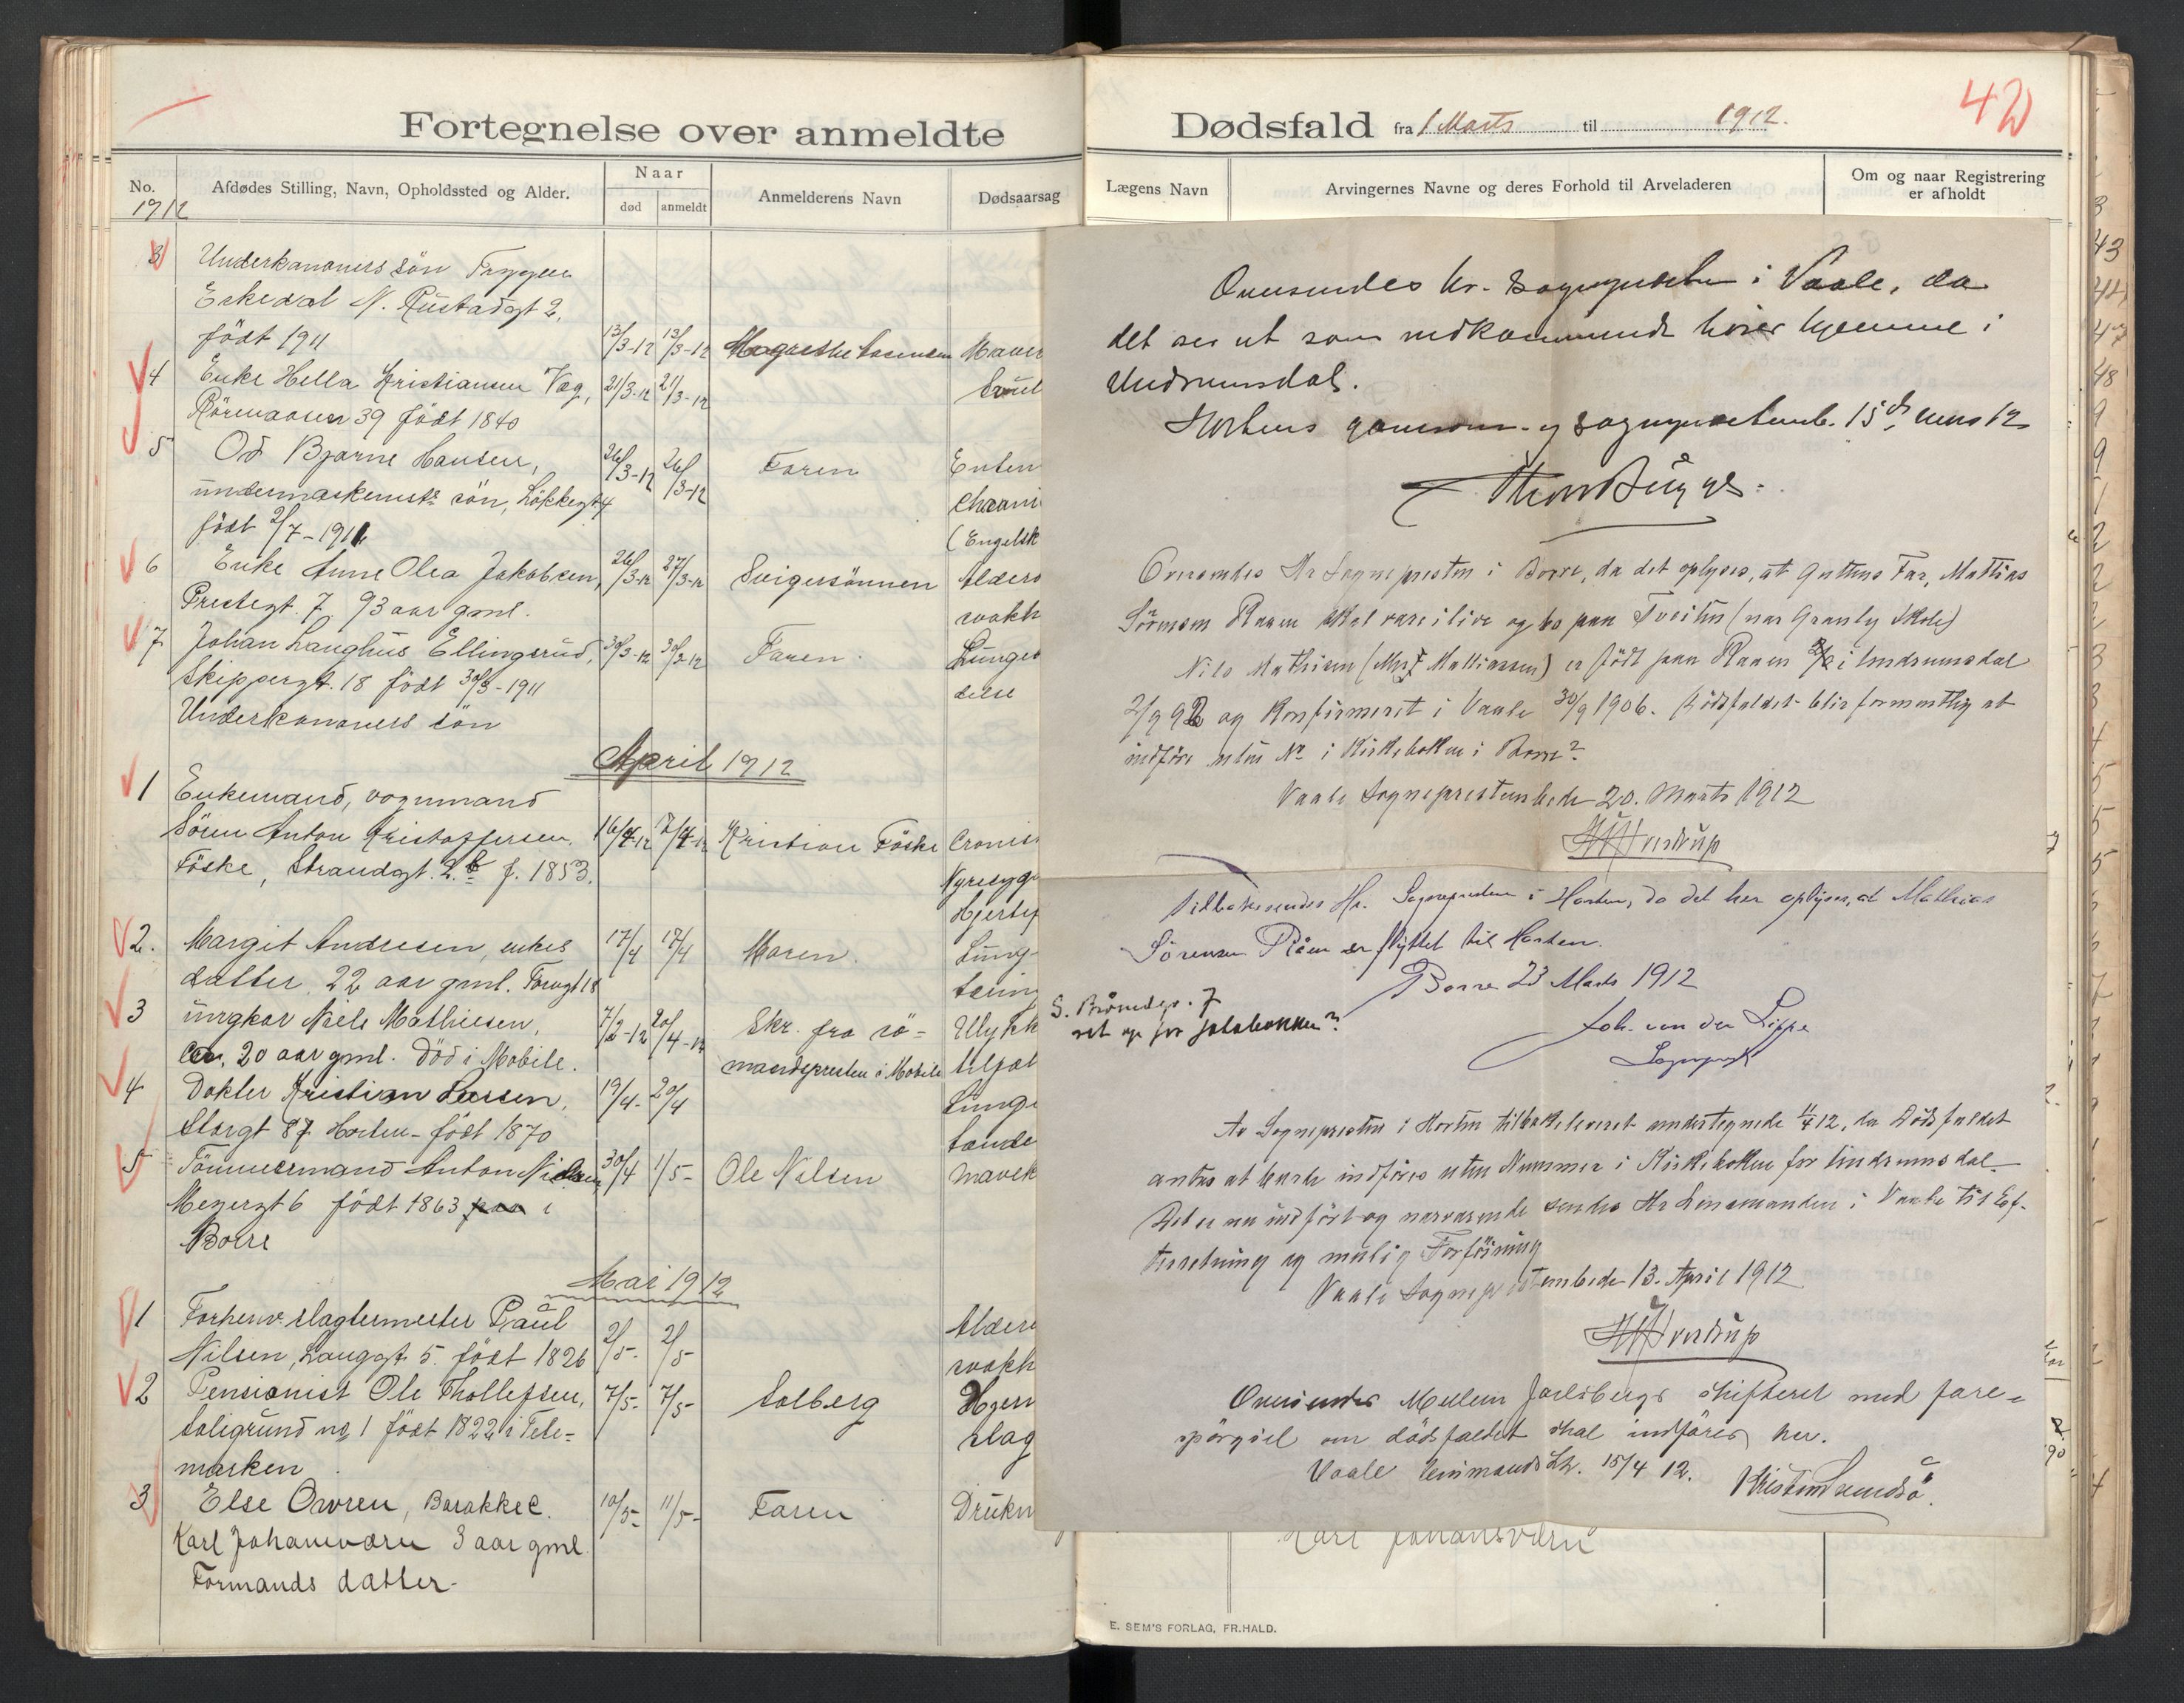 Fortegnelse over anmeldte
No.
1912
Afdødes Stilling, Navn, Opholdssted og Alder.
Naar
død
anmeldt
Anmelderens Navn
Dødsaarsag
3 Underkanoners søn
Eskedal N. Rustadgt 2,
født 1911 13/3-12 13/3-12 Maver
4 Enke Hella Kristiansen Væg, 21/3-12 21/3-12
39 født 1840
5 Od Bjarne Hansen, 26/3-12 26/3-12 Faren Enten
undermaskinists søn, Løkkegt 4
født 2/7-1911 (Engelsk
6 Enke Anne Olea Jakobsen, 26/3-12 27/3-12 Svigersønnen Alders
Prestegt. 7, 93 aar gml. svakh
7 Johan Langhus Ellingsrud, 30/3-12 30/3-12 Faren Lunge
Skippergt. 18 født 30/3-1911
Underkanoners søn
April 1912
1 Enkemand, vognmand
Søren Anton Kristoffersen 16/4-12 17/4-12 Kristian Føske Cronis
Føske, Strandgt. 2b f. 1853. Nyresyg
Hjertef
2. Margit Andresen, enkes 17/4 17/4 Moren Lung
datter. 22 aar gml. Torvgt 18 tæring
3 ungkar Niels Mathiesen, 7/2-12 20/4-12 Skr. fra sø- Ulykk
ca. 20 aar gml. død i Mobile. mandspresten i Mobile
4 Dokter Kristian Larsen, 19/4- 20/4 Lunge
Storgt 87 Horten - født 1870
5 Tømmermand Anton Nielsen 30/4 1/5- Ole Nilsen Mavek
6 født 1863 i
Borre
Mai 1912
1 Forhenv. slagtermester Paul Alders
Nilsen, Langgt. 5. født 1826 2/5- 2/5 svakh
2 Pensionist Ole Thollefsen, 7/5- 7/5- Solberg Hjern
no 1 født 1822 i Tele- slag
marken
3 Else Owren, Barakke C. 10/5- 11/5- Faren Drukn
Karl Johansværn 3 aar gml.
Formands datter-
Dødsfald fra 1 Marts til 1912.
42
Lægens Navn
Arvingernes Navne og deres Forhold til Arveladeren
Om og naar Registrering
er afholdt
Oversendes hr. Sognepresten i Vaale, da
det ser ut som vedkommende hører hjemme i
Undrumsdal.
Hortens og sogneprestemb. 15de mars 12
Thor Bugge.
Oversendes Hr Sognepresten i Borre, da det oplyses, at Guttens Far, Mattias
Sørensen Raaen skal være ilive og bo paa Tveiten (nær Granly Skole)
Nils Mathisen (Mattiassen) er født paa Raaen i Undrumsdal
2/9 92 og Konfirmeret i Vaale 30/9 1906. Dødsfaldet blir formentlig at
indføre uten No i Kirkeboken i Borre?
Vaale Sogneprestembede 20. Marts 1912
Tilbakesendes Hr. Sognepresten i Horten, da det her oplyses, at Mathias
Sørensen Råen er flyttet til Horten.
Borre 23 Marts 1912
Joh. von der Lippe
Sogneprest
Av Sognepresten i Horten tilbakeleveret undertegnede 11/4 12, da Dødsfaldet
antas at burde indføres uten Nummer i Kirkeboken for Undrumsdal.
Det er nu indført og nærværende sendes Hr Lensmanden i Vaale til Ef-
terretning og mulig Forføining
Vaale Sogneprestembede 13. April 1912
Oversendes Mellem Jarlsbergs skifteret med fore-
spørgsel om dødsfaldet skal indføres her.
Vaale lensmands 15/4 12.
Karl Johansværn
E. SEM'S FORLAG, FR.HALD.